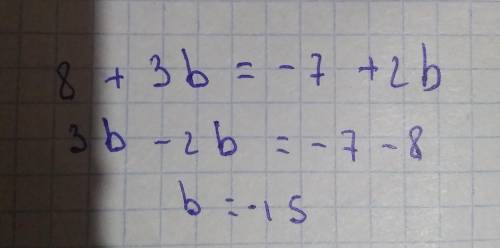 8 + 3b = -7 + 2b
3b - 2b = -7 - 8
b = -15